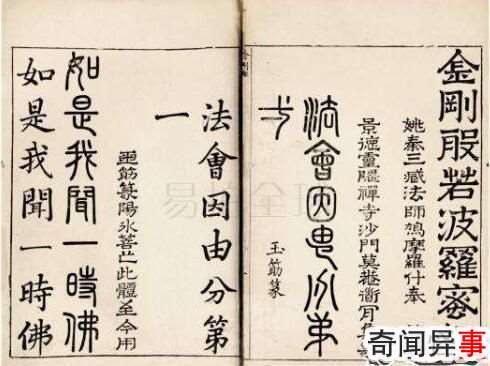 金剛般若波羅密
姚秦三藏法師鳩摩羅什奉
景德靈隱禪寺沙門莫菴衜肎集
法會因由分弟
玉筯篆
法會因由分第
一
筯篆陽冰善此體至今用
如是我聞一時佛
如是我聞一時佛
奇闻异事